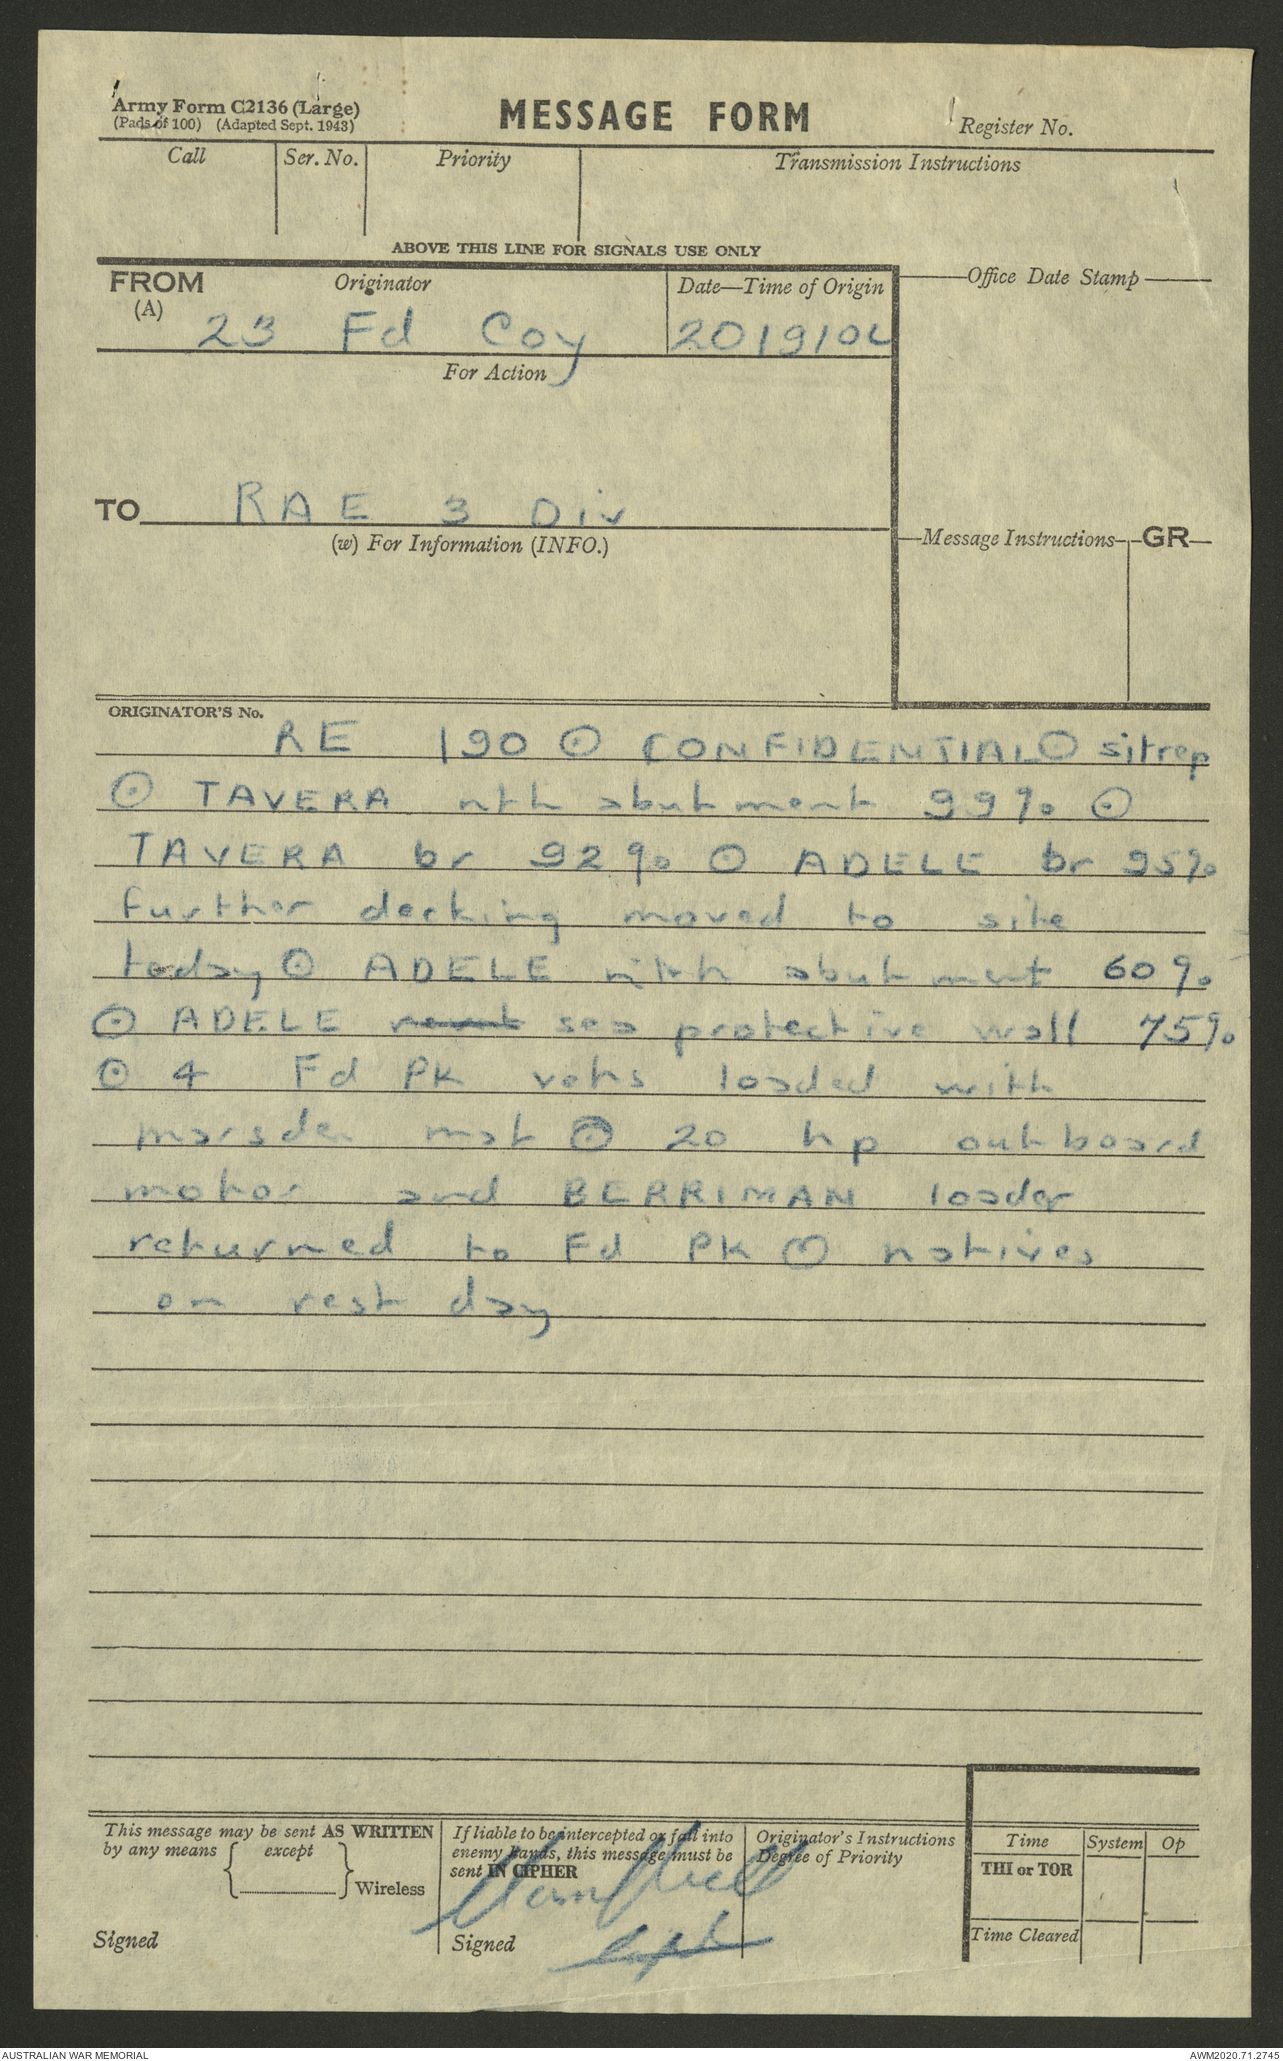 Army Form C2136 (Large)
(Pads of 100) (Adapted Sept. 1943)
MESSAGE FORM
Register No.
Call
Ser. No.
Priority
Transmission Instructions
ABOVE THIS LINE FOR SIGNALS USE ONLY
FROM
(A)
Originator
Date—Time of Origin
Office Date Stamp
23 Fd Coy
201910L
For Action
TO RAE 3 Div
(w) For Information (INFO.)
Message Instructions
GR
ORIGINATOR'S No.
RE 190 ⊙ CONFIDENTIAL ⊙ sitrep
⊙ TAVERA nth abutment 99% ⊙
TAVERA br 92% ⊙ ADELE br 95%
further decking moved to site
today ⊙ ADELE nth abutment 60%
⊙ ADELE sea protective wall 75%
⊙ 4 Fd Pk vehs loaded with
marsden mat ⊙ 20 hp outboard
motor and BERRIMAN loader
returned to Fd PK ⊙ natives
on rest day
This message may be sent AS WRITTEN
by any means
except
Wireless
Signed
If liable to be intercepted or fall into
enemy hands, this message must be
sent IN CIPHER
Signed
Capt
Originator's Instructions
Degree of Priority
Time
System
Op
THI or TOR
Time Cleared
AUSTRALIAN WAR MEMORIAL
AWM2020.71.2745